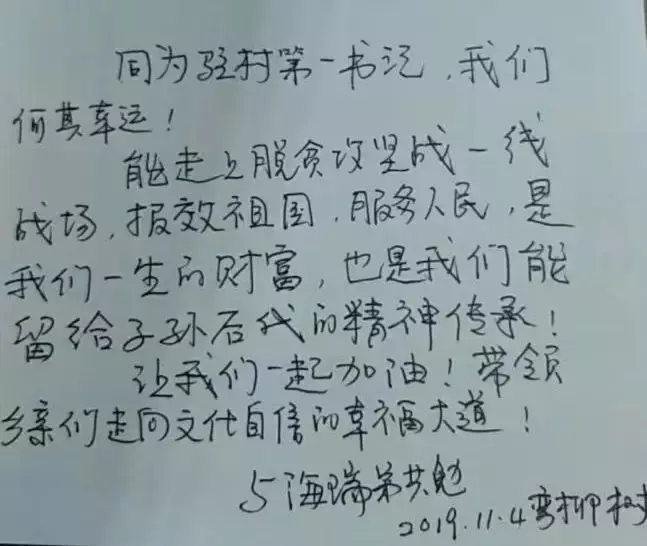 同为驻村第一书记,我们
何其幸运!
能走上脱贫攻坚战一线
战场,报效祖国,服务人民,是
我们一生的财富,也是我们能
留给子孙后代的精神传承!
让我们一起加油!带领
乡亲们走向文化自信的幸福大道!
与海瑞弟共勉
2019.11.4弯柳树